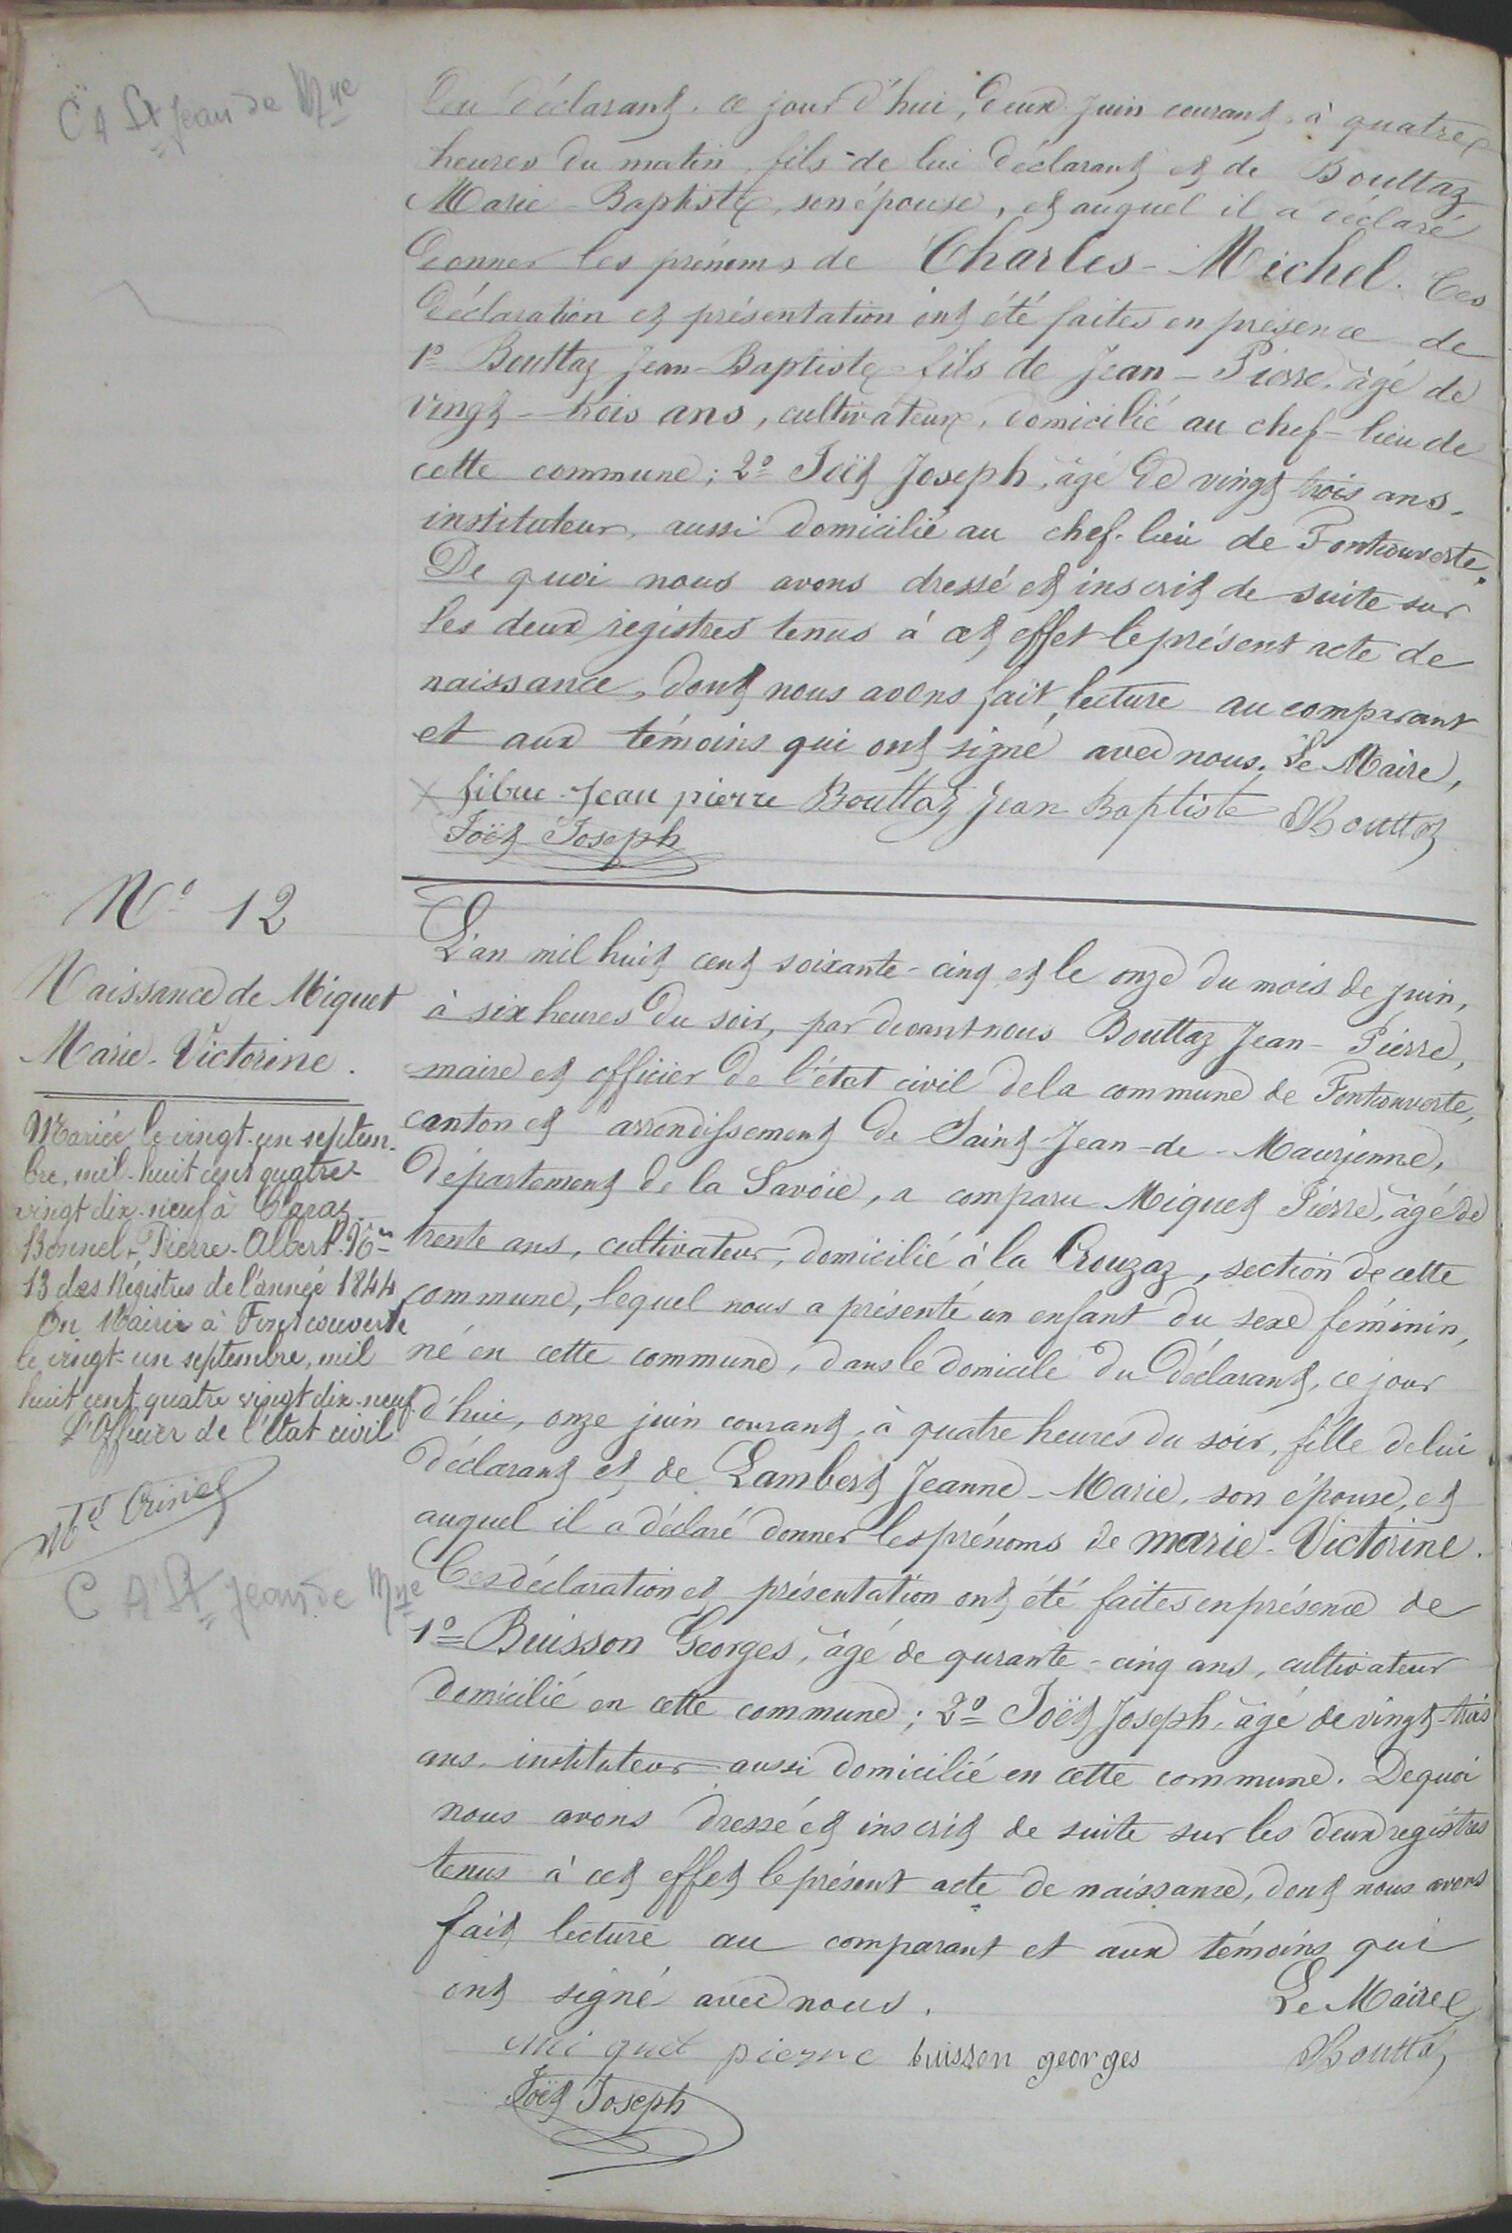 C A St Jean de Mne
du déclarant, ce jour d'hui, deux juin courant, à quatre
heures du matin, fils de lui déclarant et de Bouttaz
Marie-Baptiste, son épouse, et auquel il a déclaré
donner les prénoms de Charles-Michel. Ces
déclaration et présentation ont été faites en présence de
1º Bouttaz Jean-Baptiste fils de Jean-Pierre, âgé de
vingt-trois ans, cultivateur, domicilié au chef-lieu de
cette commune; 2º Joët Joseph, âgé de vingt trois ans,
instituteur, aussi domicilié au chef-lieu de Fontcouverte.
De quoi nous avons dressé et inscrit de suite sur
les deux régistres tenus à cet effet le présent acte de
naissance, dont nous avons fait lecture au comparant
et aux témoins qui ont signé avec nous. Le Maire,
Jean pierre Bouttaz Jean Baptiste Bouttaz
Joët Joseph
Nº 12
Naissance de Miquet
Marie-Victorine.
Mariée le vingt-un septem-
bre, mil-huit cent quatre-
vingt dix-neuf à
Bonnel Pierre-Albert Nº
13 des Régistres de l'année 1844
En Mairie à Fontcouverte
le vingt-un septembre, mil
huit cent quatre vingt dix-neuf
L'Officier de l'État civil
C A St Jean de Mne
L'an mil huit cent soixante-cinq et le onze du mois de juin,
à six heures du soir, par devant nous Bouttaz Jean-Pierre,
maire et officier de l'état civil de la commune de Fontcouverte,
canton et arrondissement de Saint-Jean-de-Maurienne,
département de la Savoie, a comparu Miquet Pierre, âgé de
trente ans, cultivateur, domicilié à la Crouzaz, section de cette
commune, lequel nous a présenté un enfant du sexe féminin,
né en cette commune, dans le domicile du déclarant, ce jour
d'hui, onze juin courant, à quatre heures du soir, fille de lui
déclarant et de Lambert Jeanne-Marie, son épouse, et
auquel il a déclaré donner les prénoms de marie-Victorine.
Ces déclaration et présentation ont été faites en présence de
1º Buisson Georges, âgé de qurante-cinq ans, cultivateur
domicilié en cette commune; 2º Joët Joseph, âgé de vingt-trois
ans, instituteur aussi domicilié en cette commune. De quoi
nous avons dressé et inscrit de suite sur les deux registres
tenus à cet effet le présent acte de naissance, dont nous avons
fait lecture au comparant et aux témoins qui
ont signé avec nous. Le Maire
miquet pierre buisson georges Bouttaz
Joët Joseph